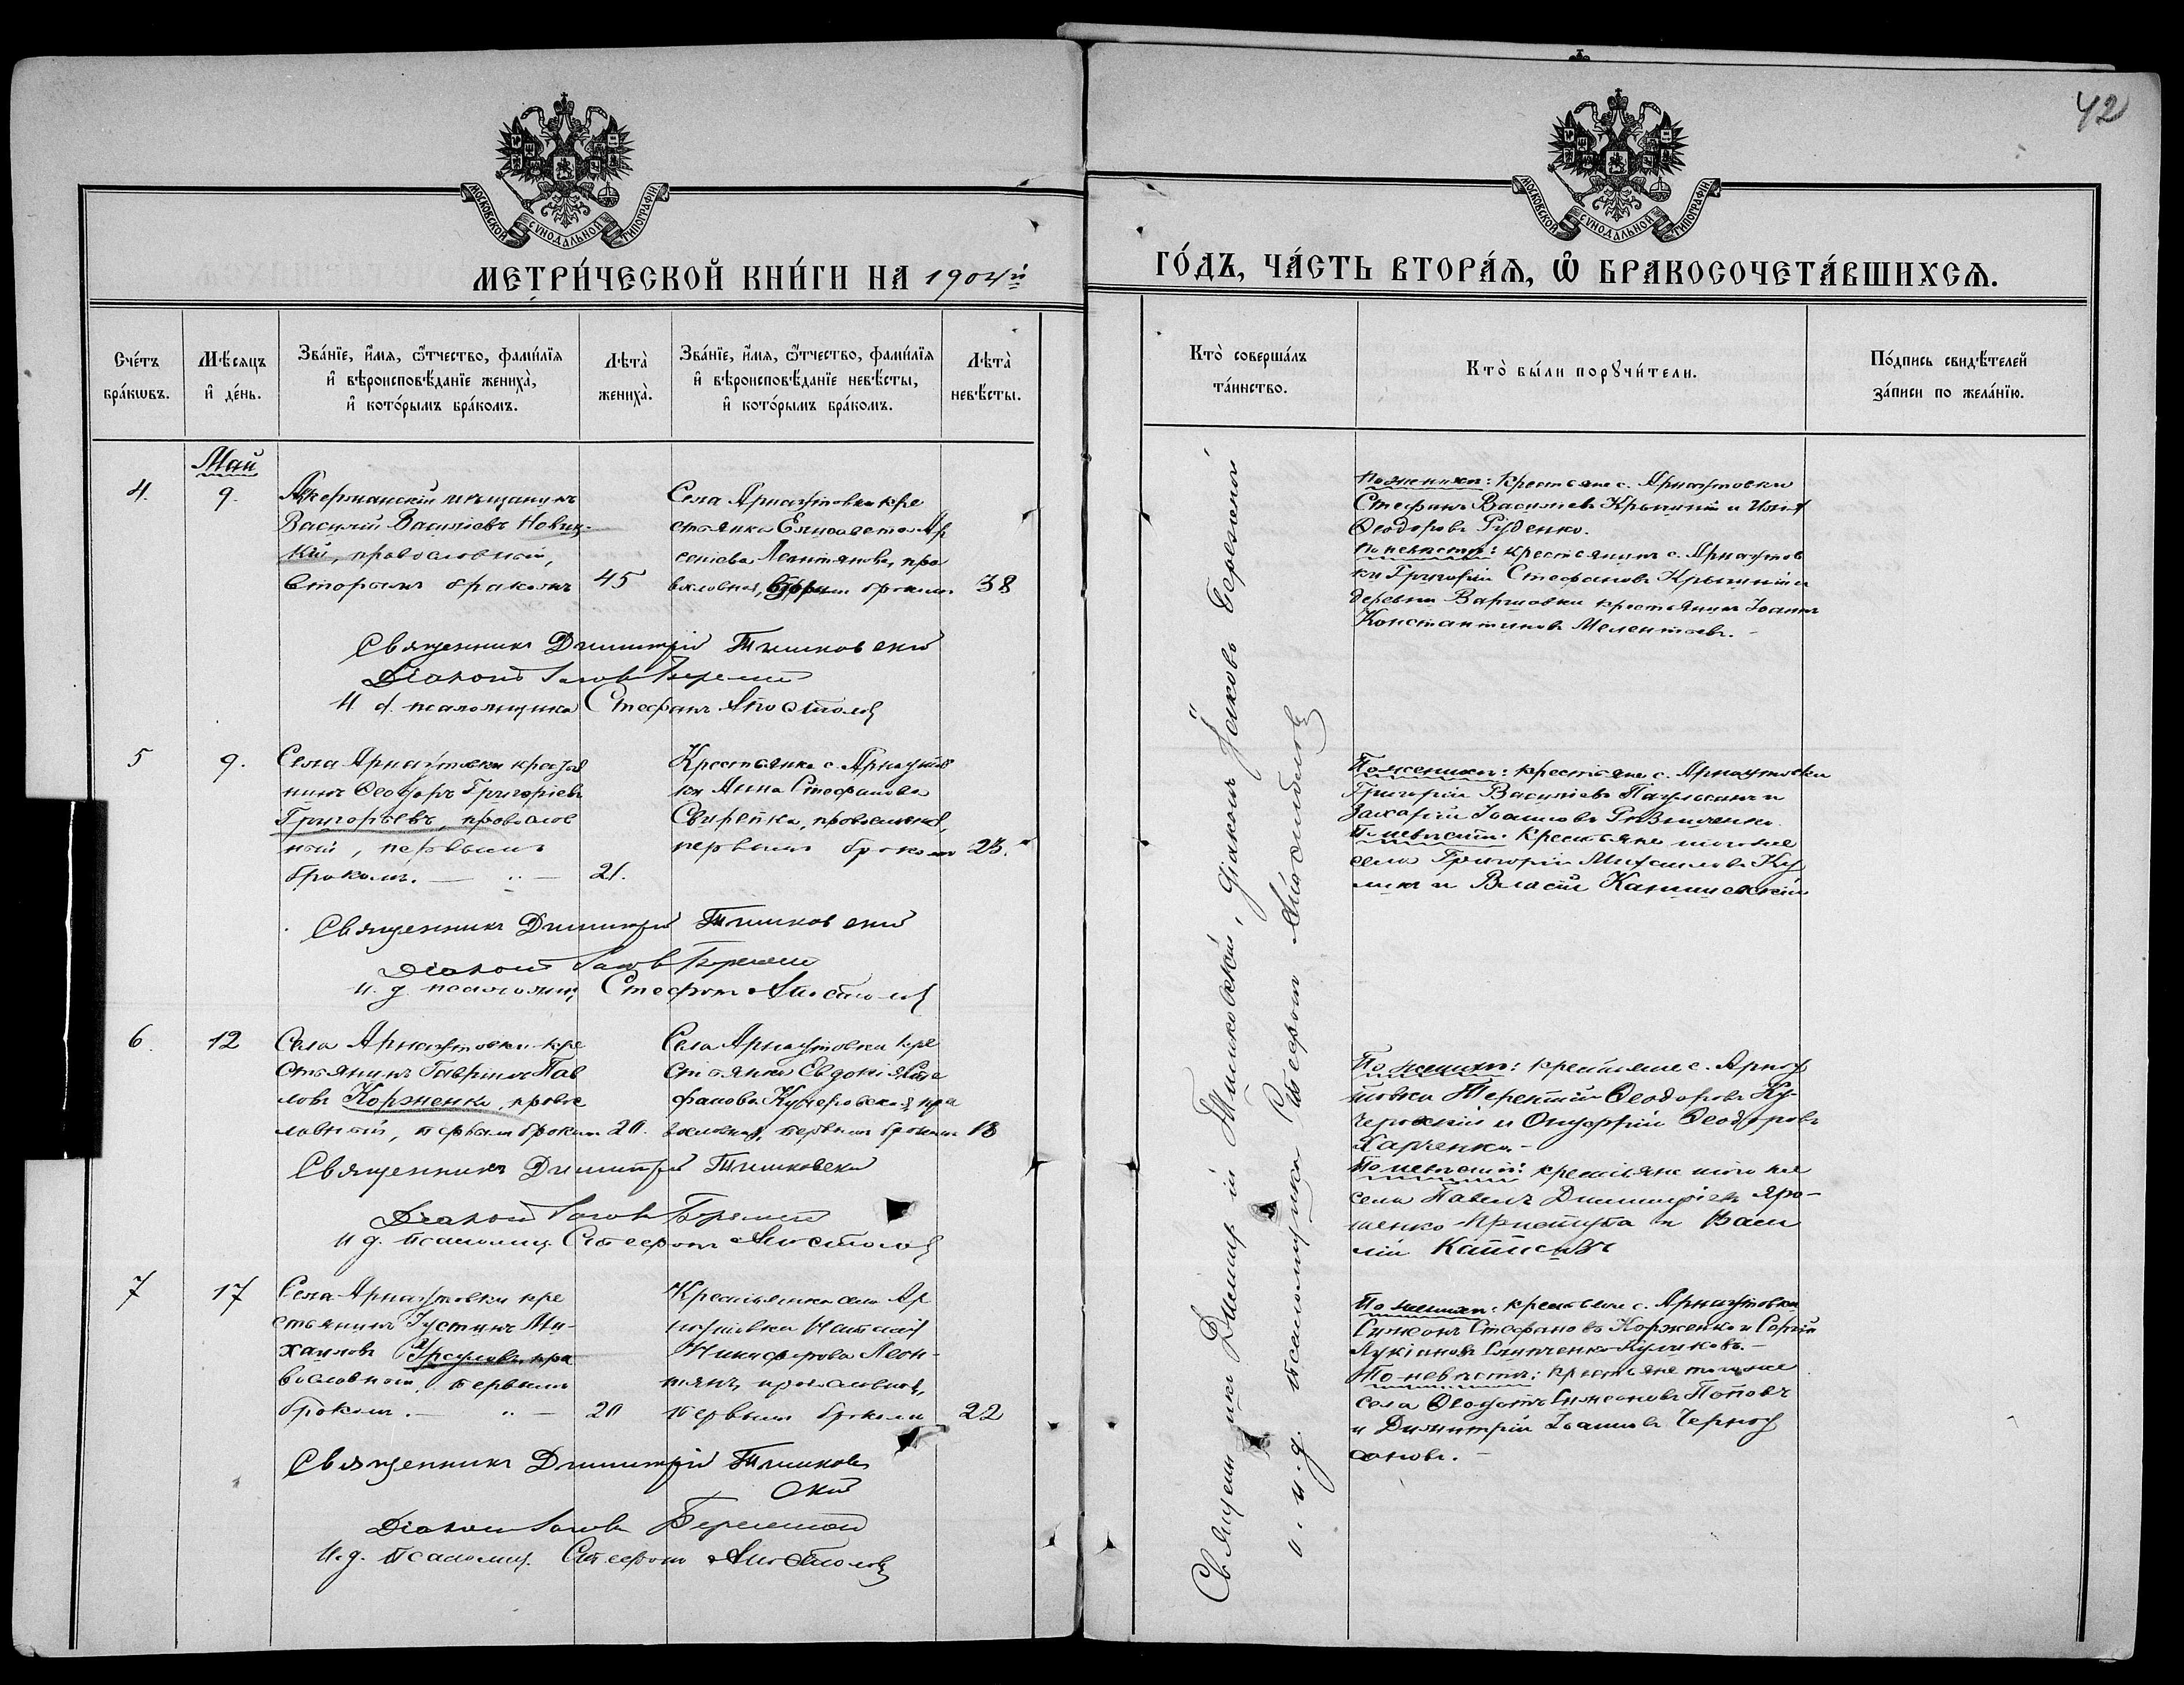 42
МОСКОВСКОЙ СѴНОДАЛЬНОЙ ТИПОГРАФІИ.
МОСКОВСКОЙ СѴНОДАЛЬНОЙ ТИПОГРАФІИ.
МЕТРИ́ЧЕСКОЙ КНИ́ГИ НА 1904й
ГО́ДЪ, ЧА́СТЬ ВТОРА́Я, Ѡ БРАКОСОЧЕТА́ВШИХСЯ.
Сче́тъ бра́кѡвъ.
Мѣ́сяцъ и҆ де́нь.
Зва́нїе, и҆́мя, ѻ҆́тчество, фами́лїя и҆ вѣроисповѣ́данїе жениха̀, и҆ кото́рымъ бра́комъ.
Лѣта̀ жениха̀.
Зва́нїе, и҆́мя, ѻ҆́тчество, фами́лїя и҆ вѣроисповѣ́данїе невѣ́сты, и҆ кото́рымъ бра́комъ.
Лѣта̀ невѣ́сты.
Кто̀ соверша́лъ та́инство.
Кто̀ бы́ли порꙋчи́тели.
По́дпись свидѣ́телей за́писи по жела́нїю.
Май
4.
9.
Аккерманскій мѣщанинъ
Василій Василіевъ Новиц-
кій, православный,
вторымъ бракомъ
45
Села Арнаутовки кре
стьянка Елисавета Ар
сеніева Леонтянова, пра
вославная, бракомъ
38
По женихѣ: крестьяне с. Арнаутовки
Стефанъ Василіевъ Крыжній и Илія
Ѳеодоровъ Руденко.
По невѣстѣ: крестьянинъ с. Арнаутов
ки Григорій Стефановъ и
деревни Варшовки крестьянинъ Іоаннъ
Константиновъ Мелентьевъ.
Священникъ Димитрій Тишковскій
Діаконъ Іаковъ
И. д. псаломщика Стефанъ Апостоловъ
5
9.
Села Арнаутовки крестья
нинъ Ѳеодоръ Григоріевъ
Григорьевъ, православ
ный, первымъ
бракомъ. — " —
21.
Крестьянка с. Арнаутов
ки Анна Стефанова
Свирепка, православная,
первымъ бракомъ
23.
По женихѣ: крестьяне с. Арнаутовки
Григорій Василіевъ и
Захарій Іоанновъ
По невѣстѣ: крестьяне того же
села Григорій Михаиловъ Ку
и Власій
Священникъ Димитрій Тишковскій
Діаконъ Іаковъ
И. д. псаломщ. Стефанъ Апостоловъ
6.
12
Села Арнаутовки кре
стьянинъ Гавріилъ Пав
ловъ Корженко, право
славный, первымъ бракомъ
20.
Села Арнаутовки кре
стьянка Евдокія Сте
фанова Кучеровская, пра
вославная, первымъ бракомъ
18
По женихѣ: крестьяне с. Арнау
товки Терентій Ѳеодоровъ Ку-
черовскій и Онуфрій Ѳеодоровъ
Харченко. —
По невѣстѣ: крестьяне того же
села Павелъ Димитріевъ Яро-
шенко-Приступа и Васи
лій
Священникъ Димитрій Тишковскій
Діаконъ Іаковъ
И. д. псаломщ. Стефанъ Апостоловъ
7
17
Села Арнаутовки кре
стьянинъ Іустинъ Ми-
хаиловъ Урсуловъ, пра
вославный, первымъ
бракомъ. — " —
20
Крестьянка села Ар
наутовки Наталія
Никифорова Леон-
тянъ, православная,
первымъ бракомъ
22
По женихѣ: крестьяне с. Арнаутовки
Симеонъ Стефановъ Корженко и Сергій
Лукіановъ
По невѣстѣ: крестьяне того же
села Ѳеодотъ Симеоновъ Поповъ
и Димитрій Іоанновъ Черноу
сановъ. —
Священникъ Димитрій Тишков
скій
Діаконъ Іаковъ
И. д. псаломщ. Стефанъ Апостоловъ
Священникъ Димитрій Тишковскій, діаконъ Іаковъ
и. д. псаломщика Стефанъ Апостоловъ